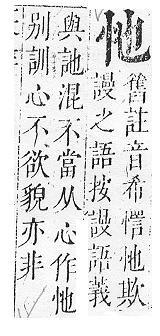 忚
舊註音希愕忚欺
謾之語按謾語義
與訑混不當从心作忚
别訓心不欲貌亦非